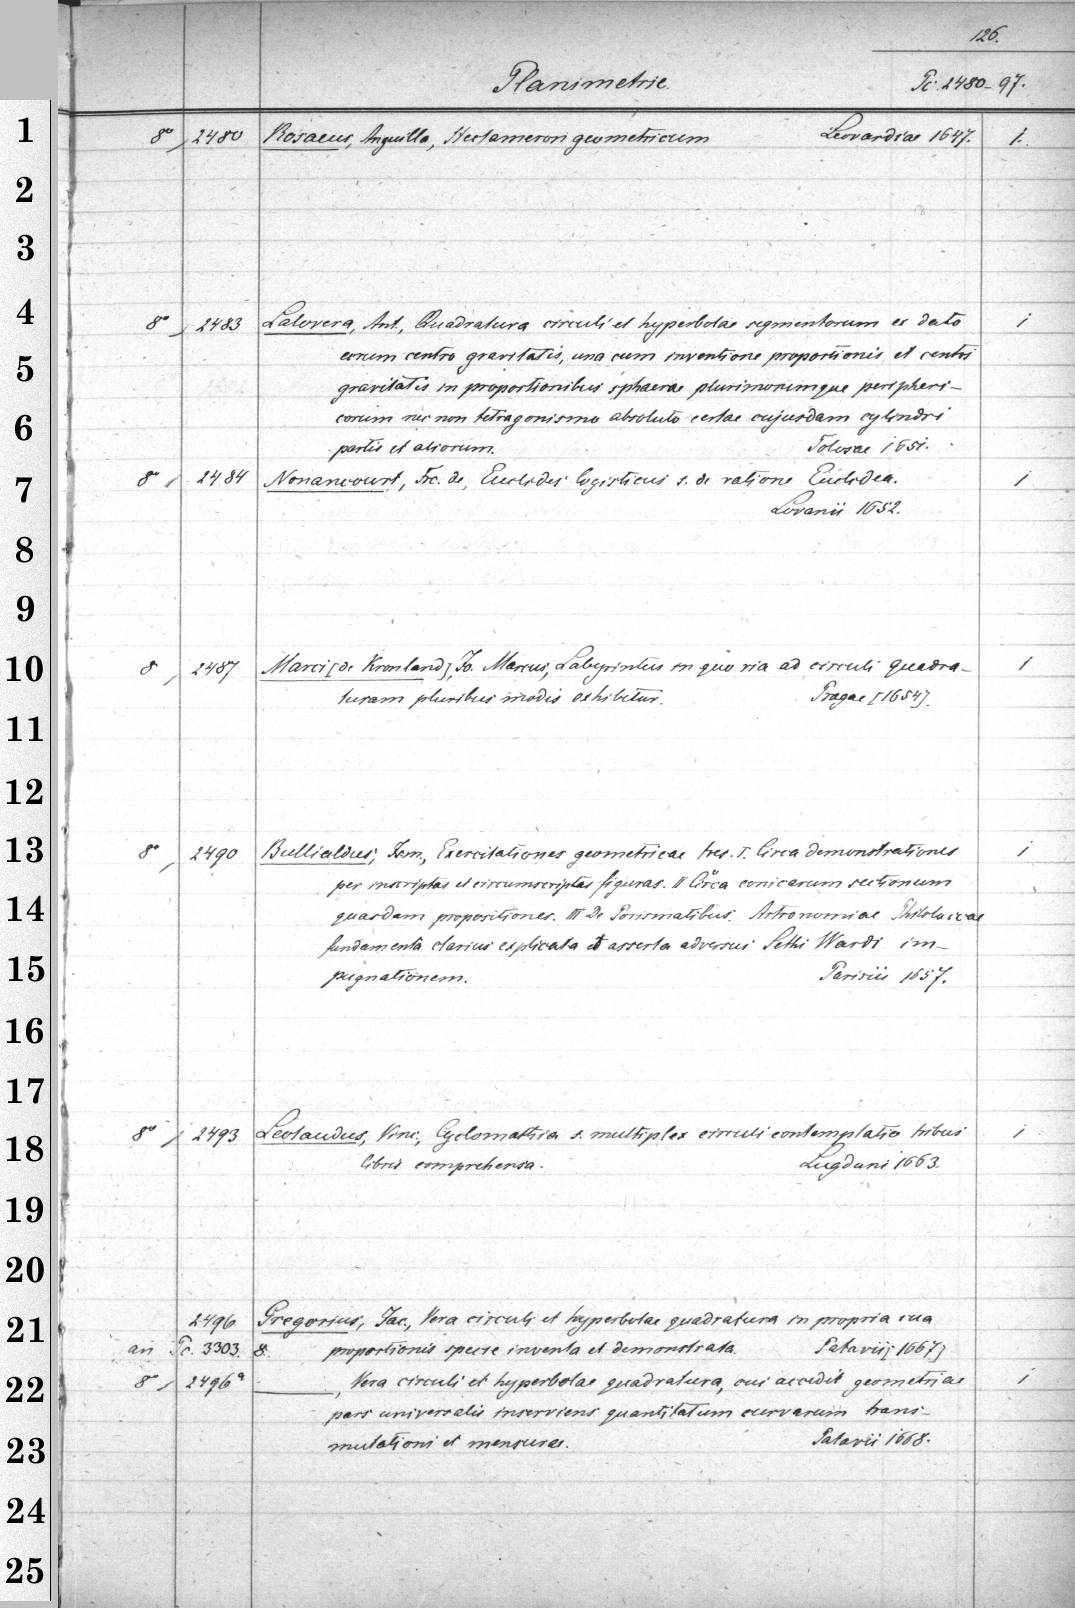 126.
Planimetrie. Pc 2480-97.
1 8° 2480 Rosaeus, Anguilla, Hectameron geometricum Leovardiae 1647. 1.
2
3
4 8° 2483 Lalovera, Ant., Quadratura circuli et hyperbolae segmentorum ex dato 1
5 eorum centro gravitatis, una cum inventione proportionis et centri
gravitatis in proportionibus sphaerae plurimorumque peripheri-
6 corum nec non tetragonismo absoluto certae cujusdam cylindri
partis et aliorum. Tolosae 1651.
7 8° 2484 Nonancourt, Frc. de, Euclides logisticus s. de ratione Euclidea. 1
Lovanii 1652.
8
9
10 8 2487 Marci [de Kronland], Jo. Marcus, Labyrintus in quo via ad circuli quadra- 1
turam pluribus modis exhibetur. Pragae [1654].
11
12
13 8° 2490 Bullialdus, Ism., Exercitationes geometricae tres. I. Circa demonstrationes 1
per inscriptas et circumscriptas figuras. II Circa conicarum sectionum
14 quasdam propositiones. III De Porismatibus. Astronomiae Philolaicae
fundamenta clarius explicata et asserta adversus Sethi Wardi im-
15 pugnationem. Parisiis 1657.
16
17
18 8° 2493 Leotaudus, Vinc., Cyclomathia s. multiplex circuli contemplatio tribus 1
libris comprehensa. Lugduni 1663.
19
20
21 2496 Gregorius, Jac., Vera circuli et hyperbolae quadratura in propria sua
an Pc. 3303. 8. proportionis specie inventa et demonstrata. Patavii [1667]
22 8° 2496a ———, Vera circuli et hyperbolae quadratura, cui accedit geometriae 1
pars universalis inserviens quantitatum curvarum trans-
23 mutationi et mensurae. Patavii 1668.
24
25